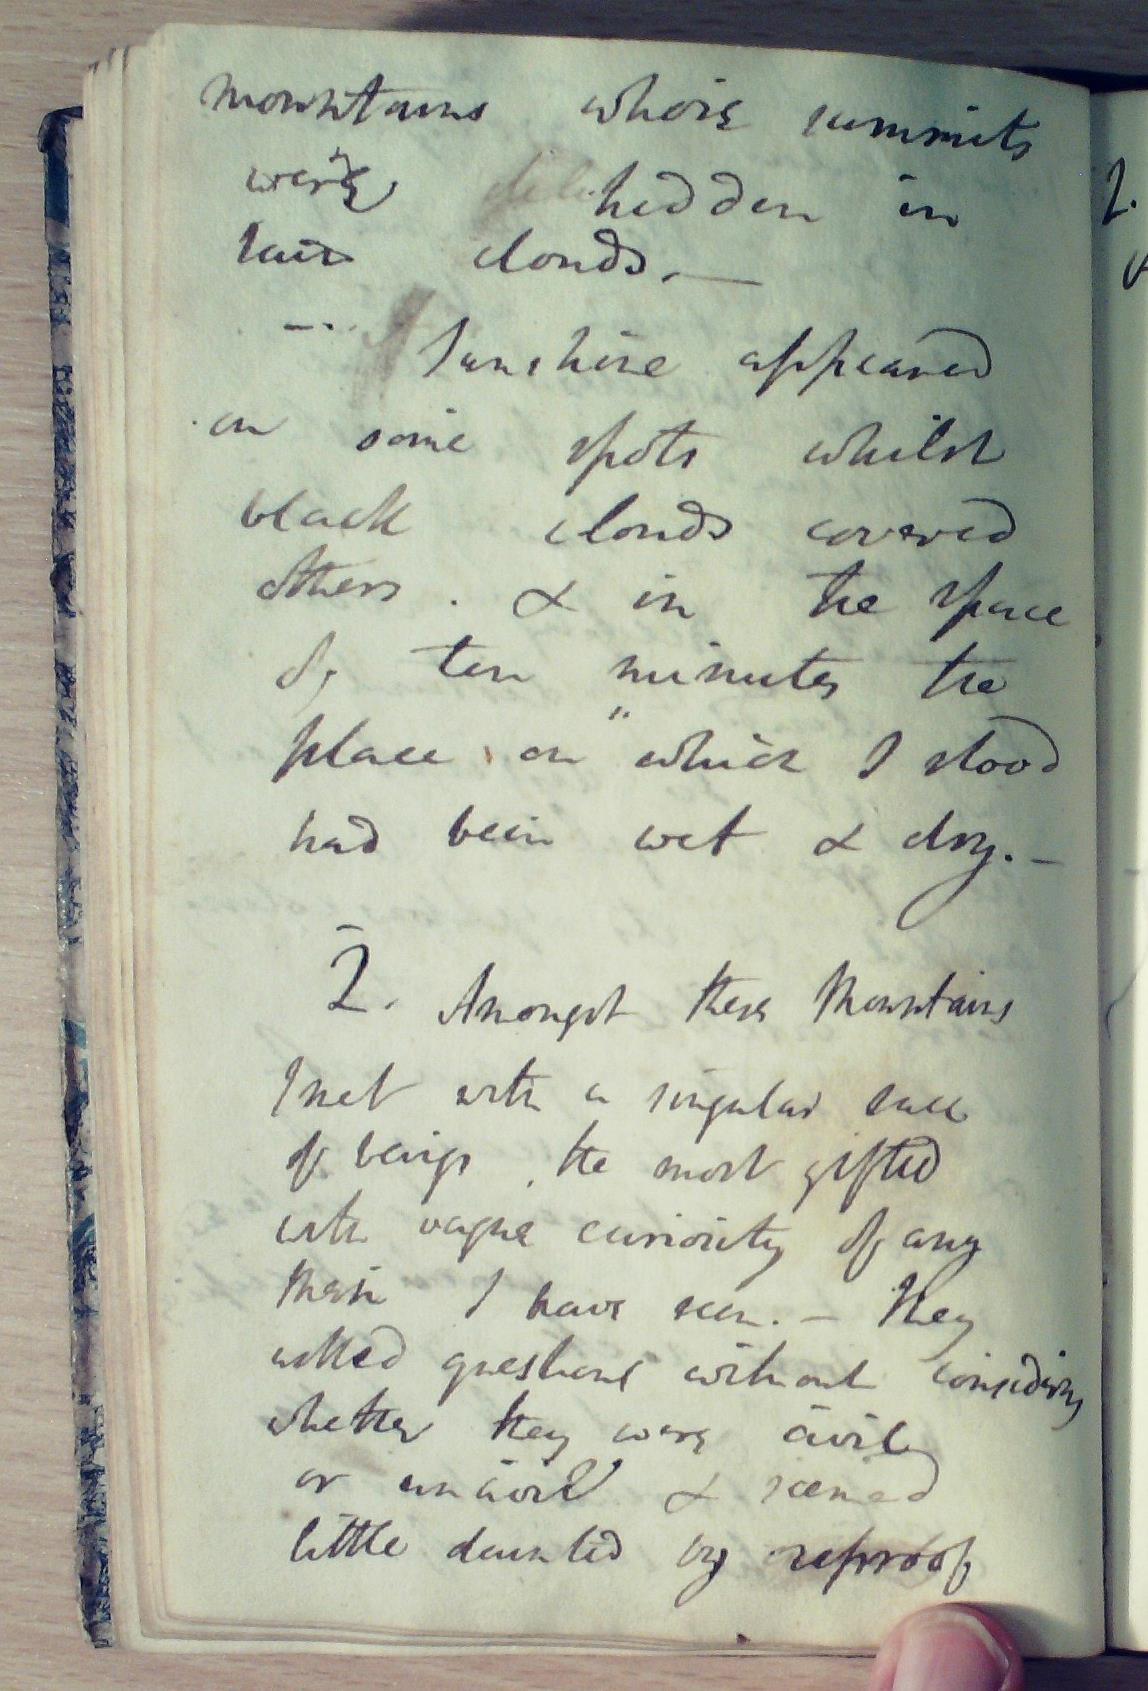 mountains whose summits
were hidden in
clouds. —
Sunshine appeared
on some spots whilst
black clouds covered
others. & in the space
of ten minutes the
place on which I stood
had been wet & dry. —
2. Amongst these Mountains
I met with a singular race
of beings, the most gifted
with vague curiosity of any
that I have seen. — They
asked questions without considering
whether they were civil
or uncivil & seemed
little daunted by reproof